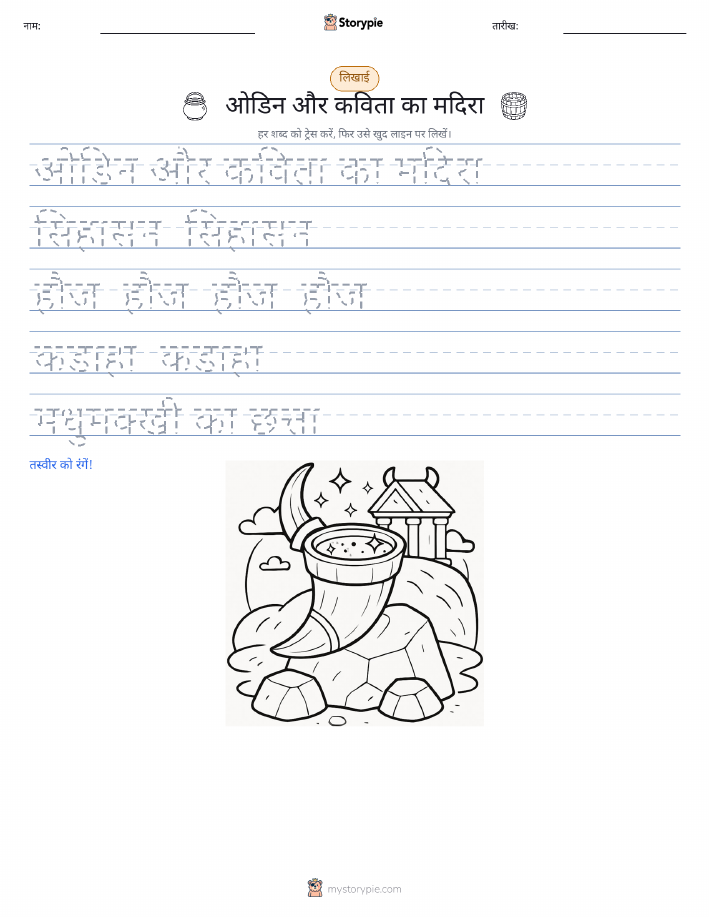 नाम:
Storypie
तारीख:
लिखाई
ओडिन और कविता का मदिरा
हर शब्द को ट्रेस करें, फिर उसे खुद लाइन पर लिखें।
ओडिन और कविता का मदिरा
सिंहासन सिंहासन
हौज हौज हौज हौज
कड़ाहा कड़ाहा
मधुमक्खी का छत्ता
तस्वीर को रंगें!
mystorypie.com